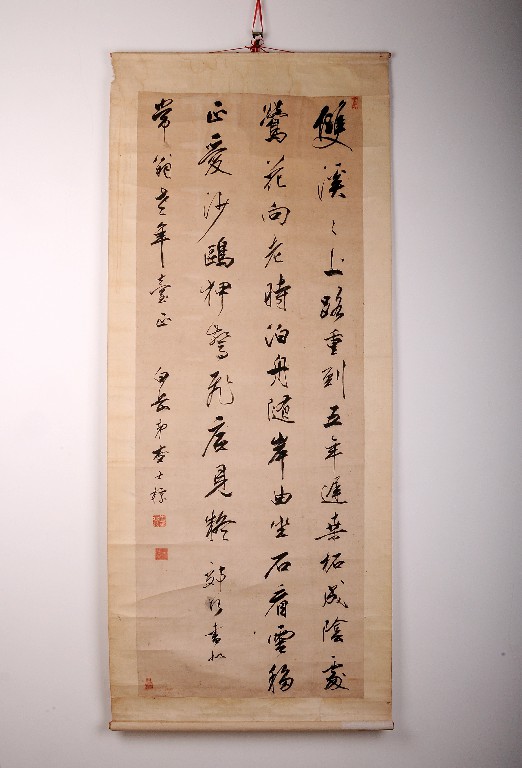 雙溪〻上路重到五年遲桑柘成陰處
鶯花向老時泊舟隨岸曲坐石看雲移
正愛沙鷗狎驚飛底見疑 書似
常老年臺正 白岳弟查士標